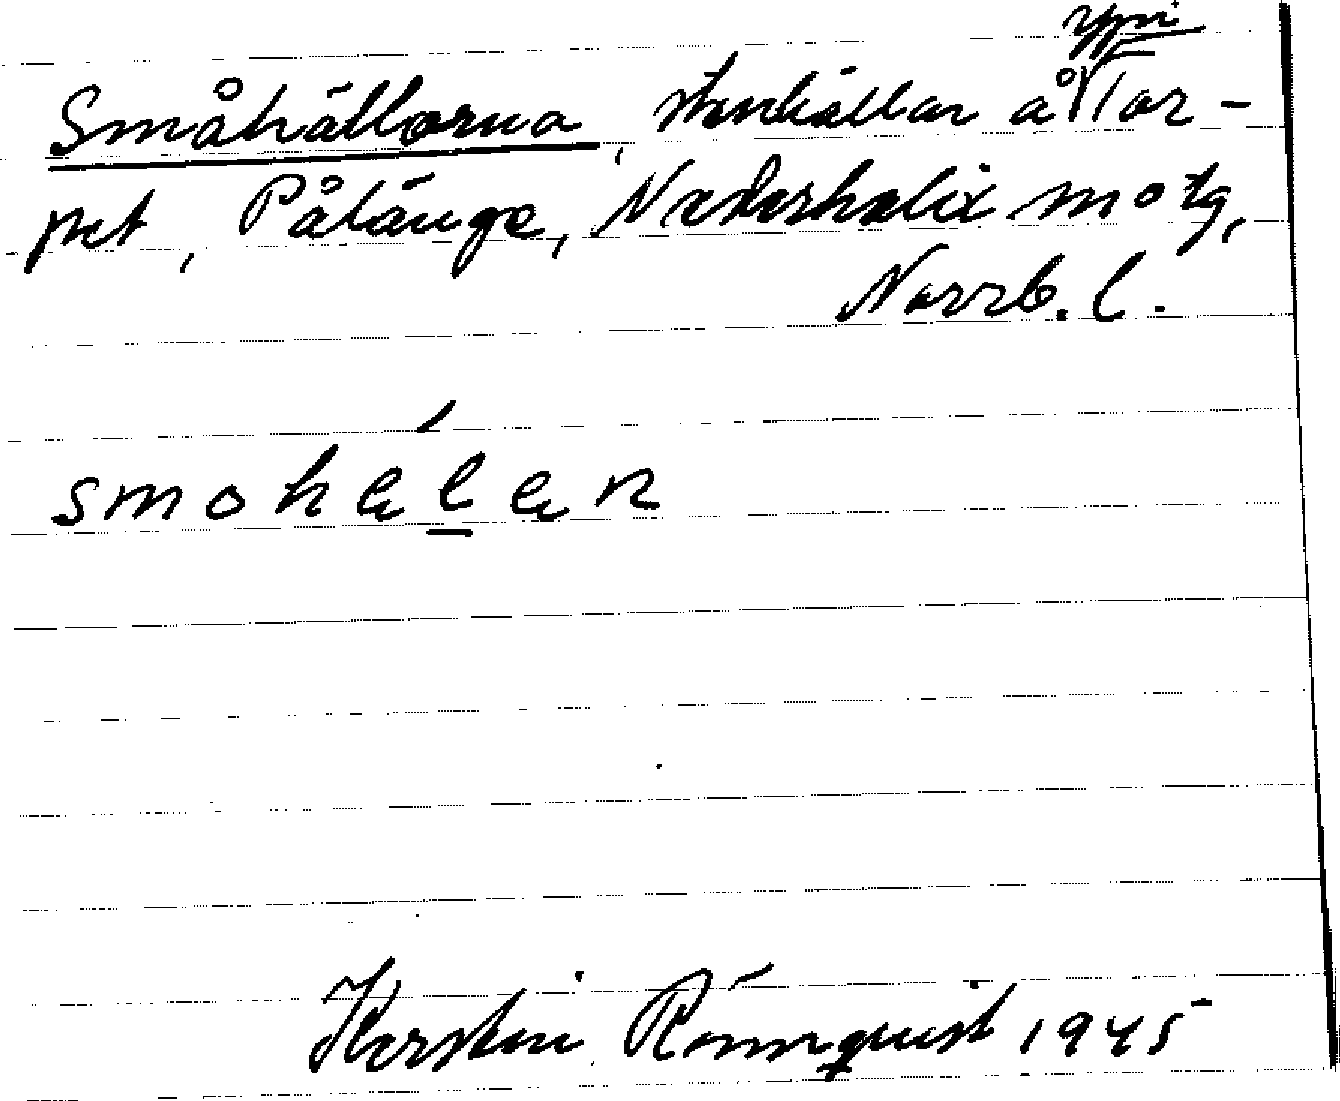 Småhällorna, stenhällar å Tor-
pet, Pålänge, Nederkalix motg,
Norrb. l.
smohęlęn
Kerstin Rönnquist 1945